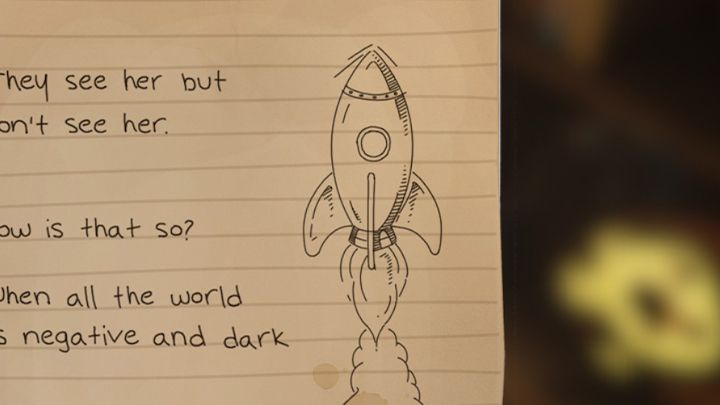 They see her but
on't see her.
ow is that so?
When all the world
s negative and dark